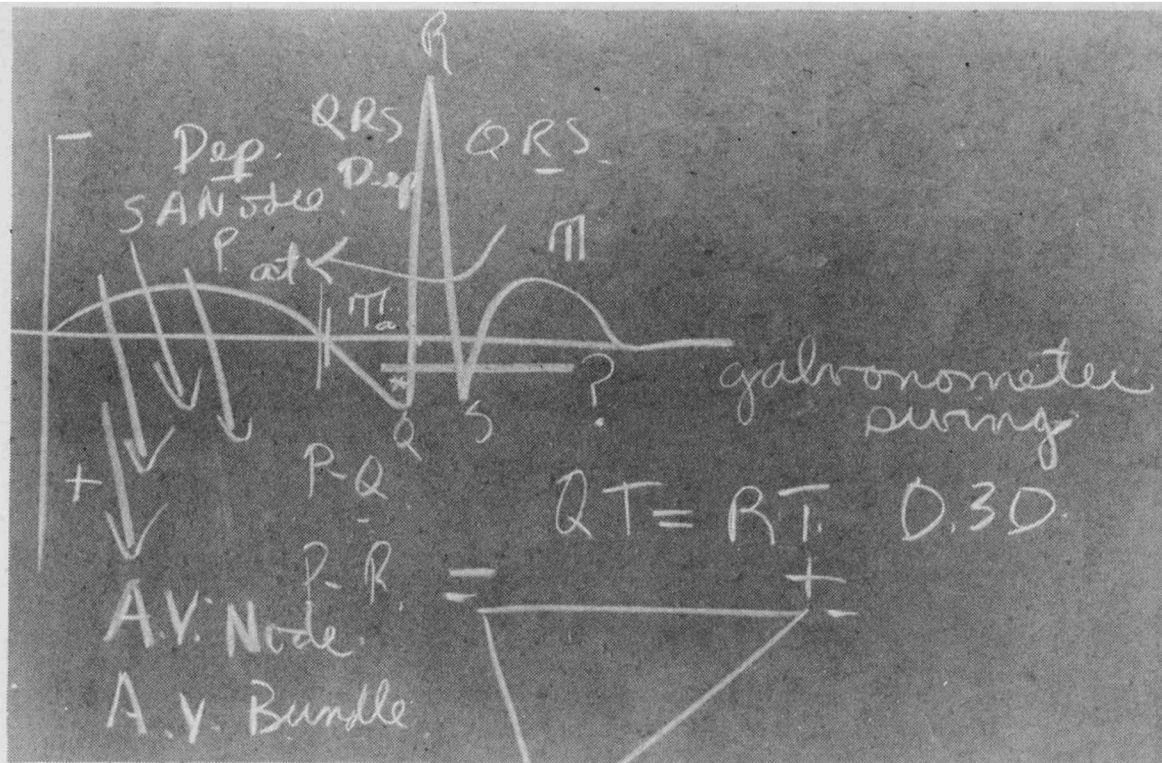 R
-
QRS
QRS
Dep.
Dep
SA Node
P
at
T
Ta
?
Q
S
galvonometer
swing
+
P-Q
QT = RT. 0.30.
P-R.
+
-
A.V. Node.
A.V. Bundle